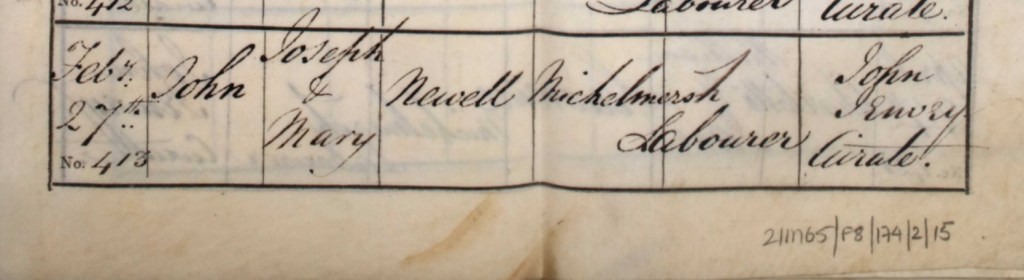 No. 412 Labourer Curate.
Feby. 27th. John Joseph & Mary Newell Michelmersh Labourer John Jenvey Curate.
No. 413
211M65/P8/174/2/15